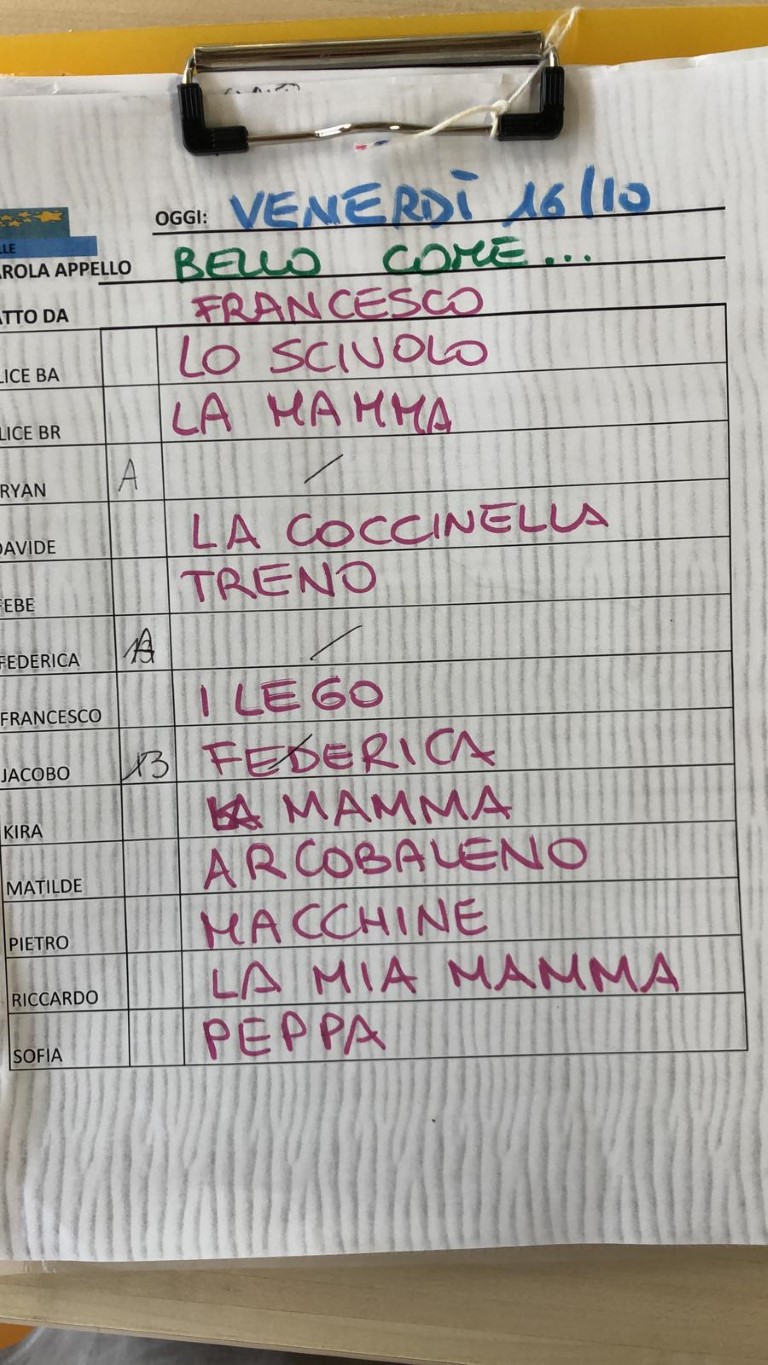 OGGI: VENERDÌ 16/10
LLE
AROLA APPELLO BELLO COME...
ATTO DA FRANCESCO
LICE BA LO SCIVOLO
LICE BR LA MAMMA
RYAN A /
DAVIDE LA COCCINELLA
FEBE TRENO
FEDERICA A /
FRANCESCO I LEGO
JACOBO 13 FEDERICA
KIRA LA MAMMA
MATILDE ARCOBALENO
PIETRO MACCHINE
RICCARDO LA MIA MAMMA
SOFIA PEPPA